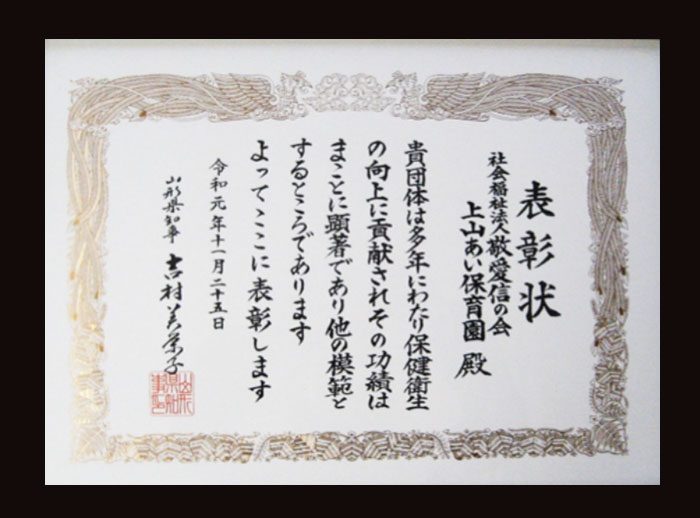 表彰状
社会福祉法人敬愛信の会
上山あい保育園 殿
貴団体は多年にわたり保健衛生
の向上に貢献されその功績は
まことに顕著であり他の模範と
するところであります
よってここに表彰します
令和元年十一月二十五日
山形県知事 吉村美栄子
山形県知事之印